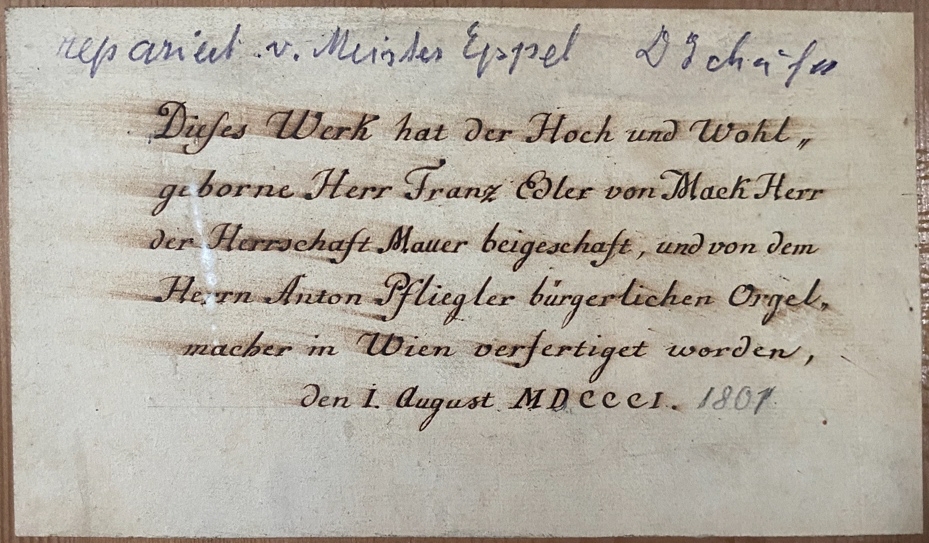 repariert v. Meister Eppel D Schäfer
Dieses Werk hat der Hoch und Wohl„
geborne Herr Franz Edler von Mack Herr
der Herrschaft Mauer beigeschaft, und von dem
Herrn Anton Pfliegler bürgerlichen Orgel„
macher in Wien verfertiget worden,
den 1. August MDCCCI. 1801